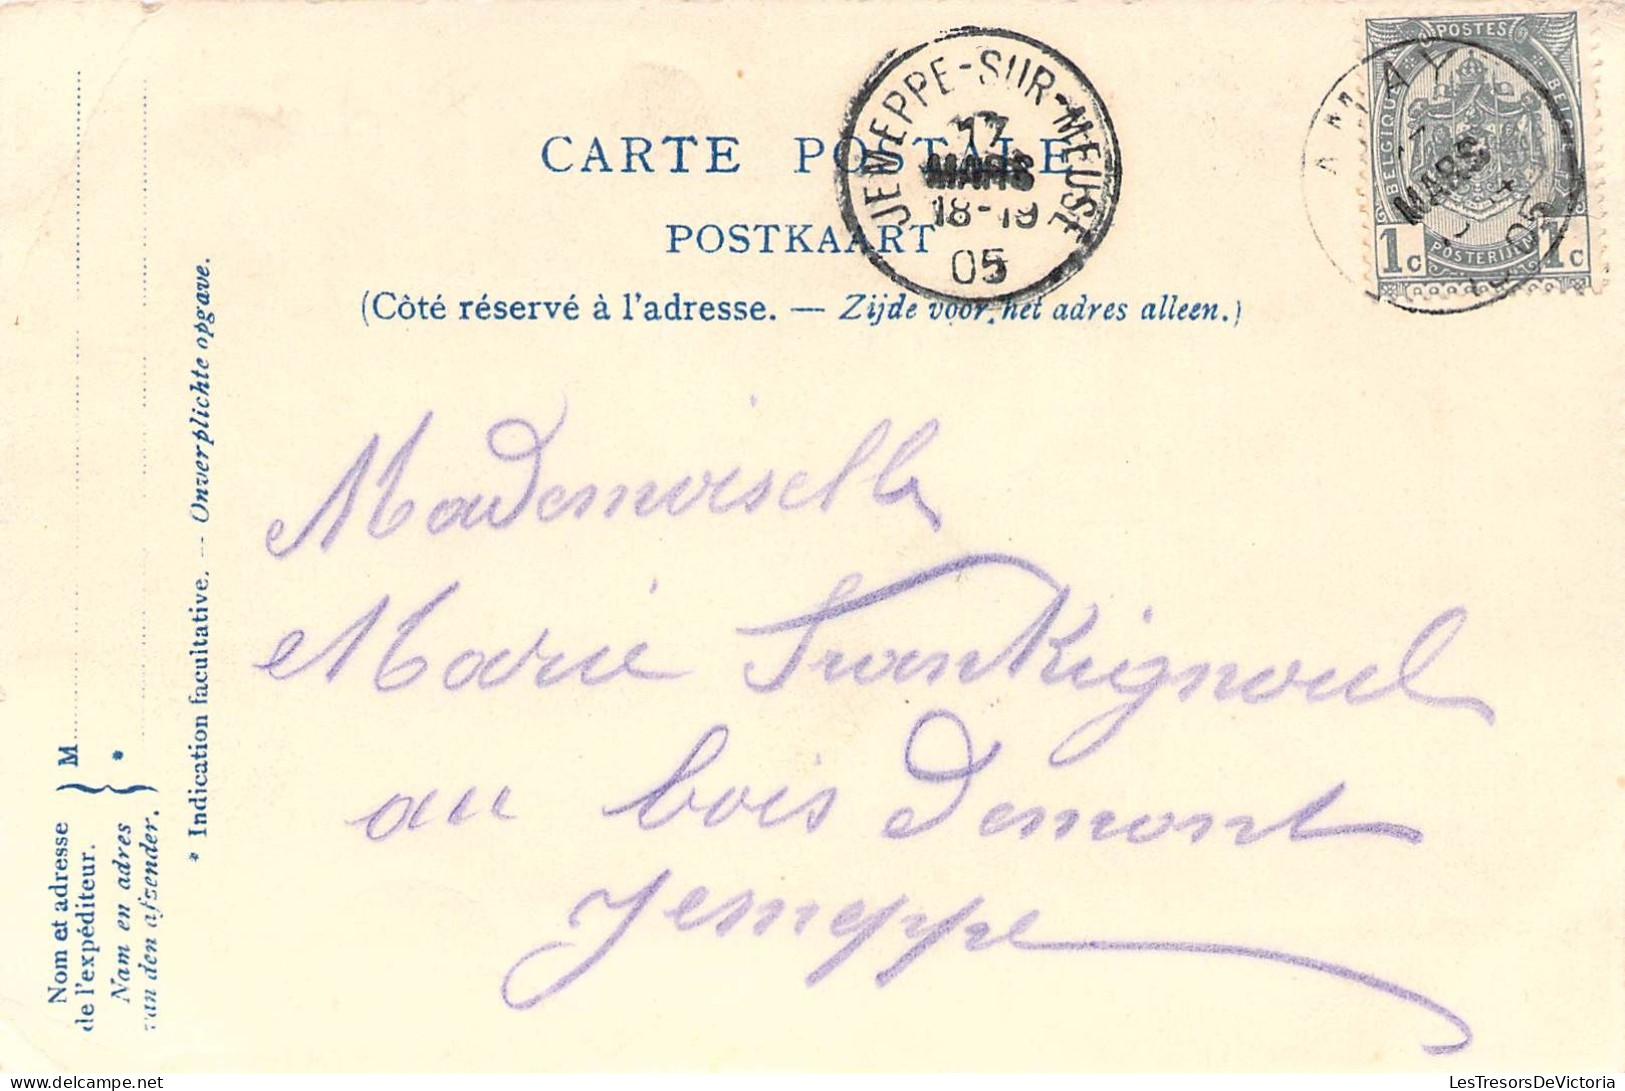 CARTE POSTALE
POSTKAART
(Côté réservé à l'adresse. — Zijde voor het adres alleen.)
JEMEPPE-SUR-MEUSE
17
MARS
18-19
05
POSTES
BELGIQUE
POSTERIJEN
1c 1c
AMAY
MARS
05
Mademoiselle
Marie Frankignoul
au bois Demont
Jemeppe
M
*
Nom et adresse
de l'expéditeur.
Nam en adres
van den afzender.
* Indication facultative. — Onverplichte opgave.
LesTresorsDeVictoria
LesTresorsDeVictoria